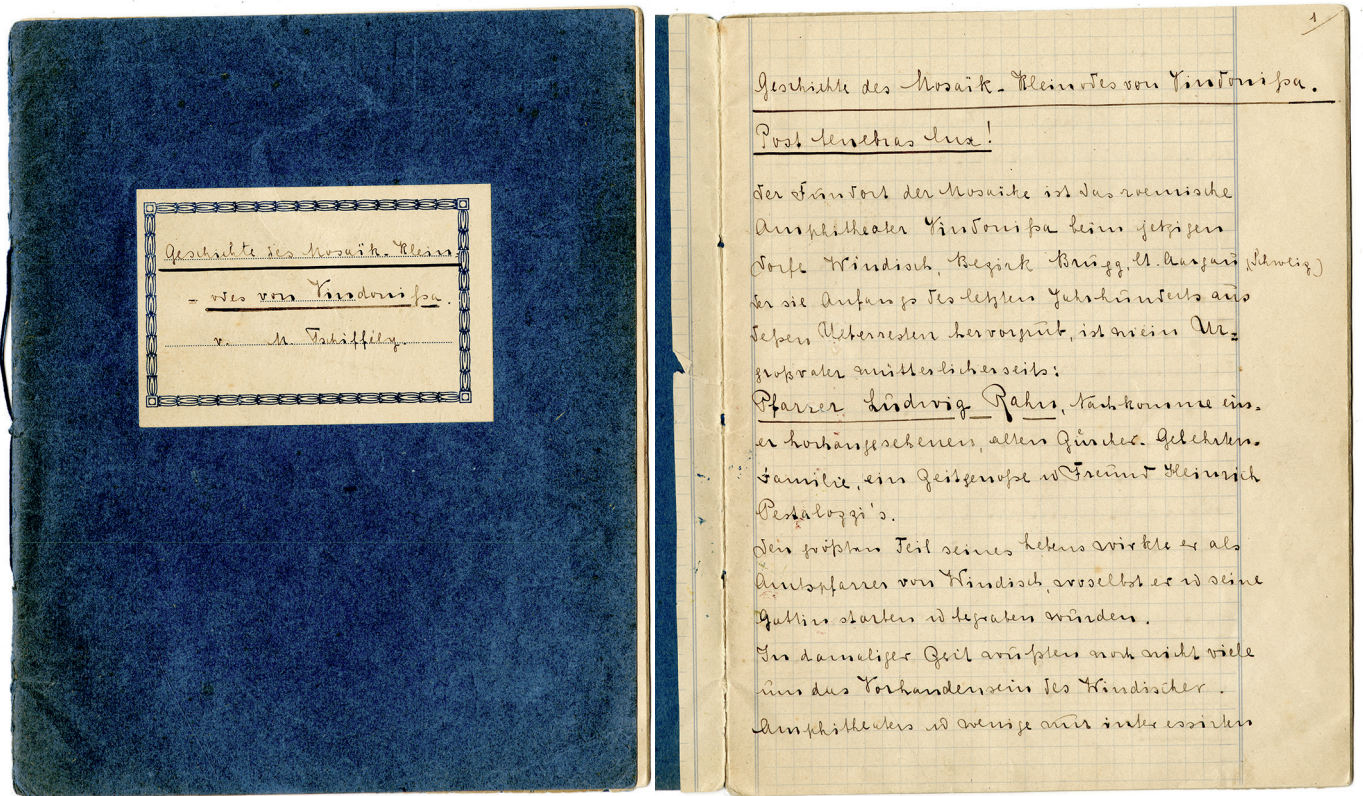 Geschichte des Mosaïk-Klein-
= odes von Vindonißa.
v. M. Tschiffély.
1
Geschichte des Mosaïk-Kleinodes von Vindonißa.
Post tenebras lux!
Der Fundort der Mosaike ist das roemische
Amphitheater Vindonißa beim jetzigen
Dorfe Windisch, Bezirk Brugg, Ct. Aargau (Schweiz)
Der sie Anfangs des letzten Jahrhunderts aus
deßen Ueberresten hervorgrub, ist mein Ur=
großvater mütterlicherseits:
Pfarrer Ludwig Rahn, Nachkomme ein-
er hochangesehenen, alten Zürcher-Gelehrten-
Familie, ein Zeitgenoße u Freund Heinrich
Pestalozzi's.
Den größten Teil seines Lebens wirkte er als
Amtspfarrer von Windisch, woselbst er u seine
Gattin starben u begraben wurden.
In damaliger Zeit wußten noch nicht viele
um das Vorhandensein des Windischer-
Amphitheaters u wenige nur interessirten